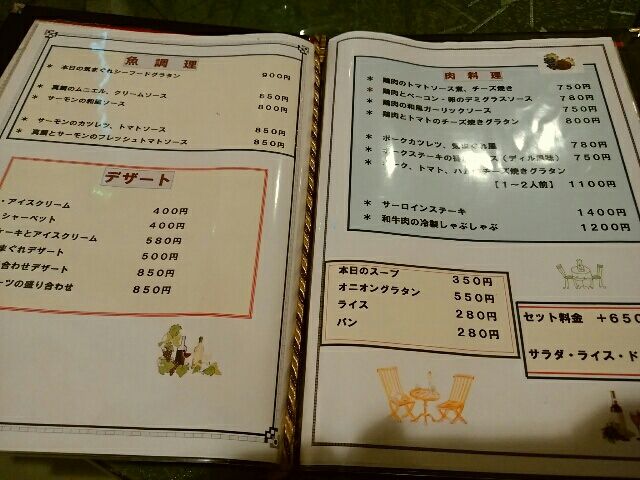 魚調理
* 本日の気まぐれシーフードグラタン 900円
* 真鯛のムニエル、クリームソース 850円
* サーモンの和風ソース 800円
* サーモンのカツレツ、トマトソース 850円
* 真鯛とサーモンのフレッシュトマトソース 850円
デザート
・アイスクリーム 400円
シャーベット 400円
ーキとアイスクリーム 580円
まぐれデザート 500円
合わせデザート 850円
ーツの盛り合わせ 850円
肉料理
* 鶏肉のトマトソース煮、チーズ焼き 750円
* 鶏肉とベーコン・卵のデミグラスソース 780円
* 鶏肉の和風ガーリックソース 750円
* 鶏肉とトマトのチーズ焼きグラタン 800円
* ポークカツレツ、気まぐれ風 780円
ークステーキの ース(ディル風味) 750円
ーク、トマト、ハ チーズ焼きグラタン
[1~2人前] 1100円
* サーロインステーキ 1400円
* 和牛肉の冷製しゃぶしゃぶ 1200円
本日のスープ 350円
オニオングラタン 550円
ライス 280円
パン 280円
セット料金 +650
サラダ・ライス・ド